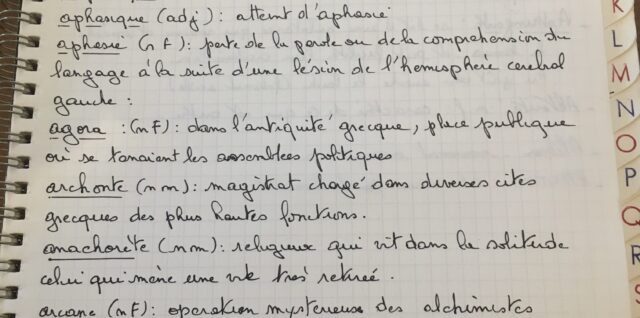 aphasique (adj): atteint d'aphasie
aphasie (n f): perte de la parole ou de la compréhension du
langage à la suite d'une lésion de l'hémisphère cérébral
gauche :
agora : (n f): dans l'antiquité grecque, place publique
où se tenaient les assemblées politiques
archonte (n m): magistrat chargé dans diverses cités
grecques des plus hautes fonctions.
anachorète (n m): religieux qui vit dans la solitude
celui qui mène une vie très retirée.
arcane (n f): opération mystérieuse des alchimistes
K
L
M
N
O
P
Q
R
S